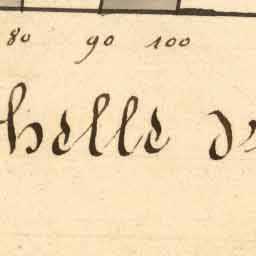 80 90 100
helle de